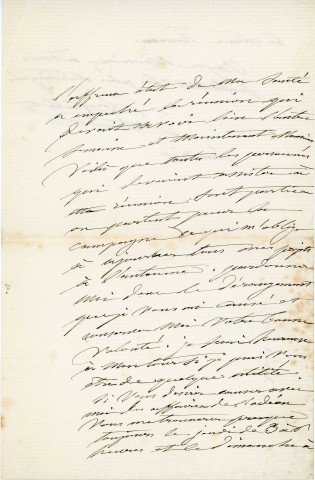 L'affreux état de ma Santé
a empêché la réunion qui
devait avoir lieu l'autre
Semaine et Maintenant
Voilà que toutes les personnes
qui devaient assister à
ma réunion. Sont parties
ou partent pour la
campagne ce qui m'oblige
à ajourner tous mes projets
à l'automne. pardonnez
Moi donc le Dérangement
que je vous ai causé et
conservez Moi Votre bonne
Volonté. je serai heureuse
à Mon tour Si je puis Vous
être de quelque utilité.
Si Vous désirez causer avec
moi des affaires de
Vous me trouverez presque
toujours le jeudi de 3 à 5
heures et le dimanche à